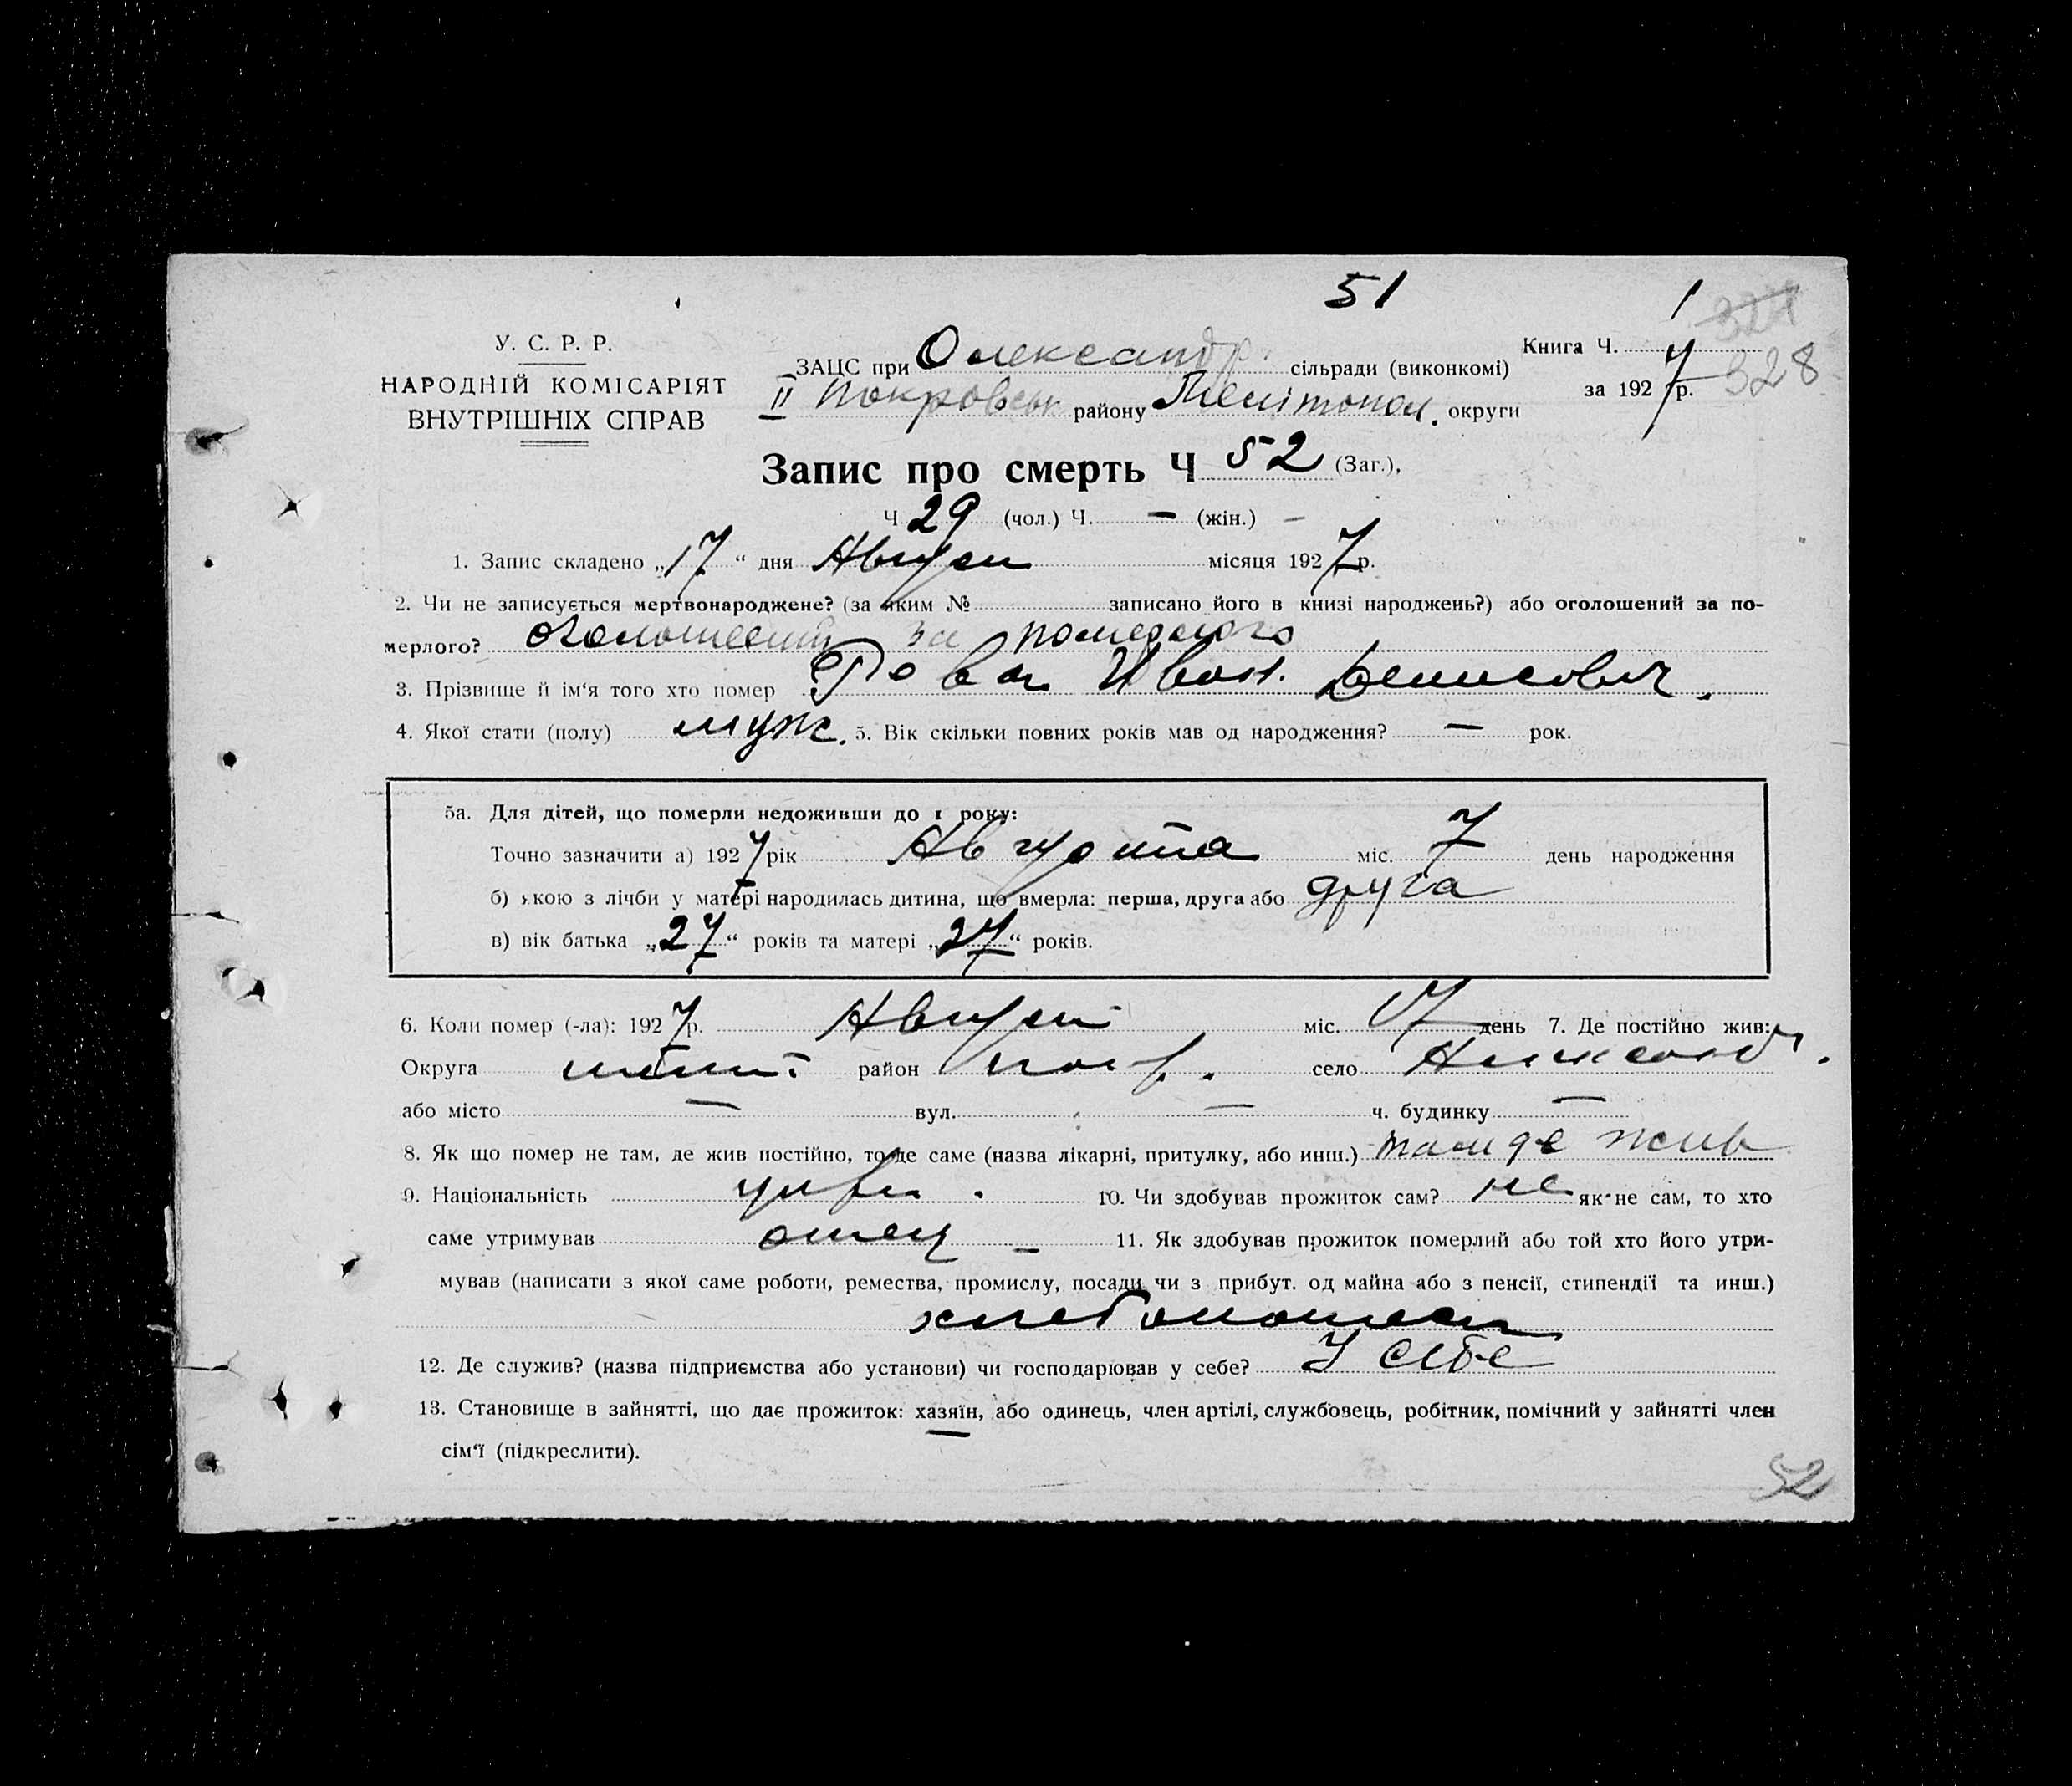 51
У. С. Р. Р.
НАРОДНІЙ КОМІСАРІЯТ
ВНУТРІШНІХ СПРАВ
ЗАЦС при Олександр. сільради (виконкомі)
II Покровськ району Мелітопол. округи
Книга Ч. 1 327
за 1927 р. 328
Запис про смерть Ч 52 (Заг.),
Ч 29 (чол.) Ч. — (жін.) —
1. Запис складено „17“ дня місяця 1927 р.
2. Чи не записується мертвонароджене? (за яким № записано його в книзі народжень?) або оголошений за по-
мерлого? за померлого
3. Прізвище й ім'я того хто помер Иван. Денисович.
4. Якої стати (полу) муж. 5. Вік скільки повних років мав од народження? — рок.
5а. Для дітей, що померли недоживши до 1 року:
Точно зазначити а) 1927 рік Августа міс. 7 день народження
б) якою з лічби у матері народилась дитина, що вмерла: перша, друга або друга
в) вік батька „27“ років та матері „27“ років.
6. Коли помер (-ла): 1927 р. міс. 17 день 7. Де постійно жив:
Округа район село
або місто — вул. — ч. будинку —
8. Як що помер не там, де жив постійно, то де саме (назва лікарні, притулку, або инш.) там де жив
9. Національність 10. Чи здобував прожиток сам? не як не сам, то хто
саме утримував отец — 11. Як здобував прожиток померлий або той хто його утри-
мував (написати з якої саме роботи, ремества, промислу, посади чи з прибут. од майна або з пенсії, стипендії та инш.)
12. Де служив? (назва підприємства або установи) чи господарював у себе? У себе
13. Становище в зайнятті, що дає прожиток: хазяїн, або одинець, член артілі, службовець, робітник, помічний у зайнятті член
сім'ї (підкреслити).
52